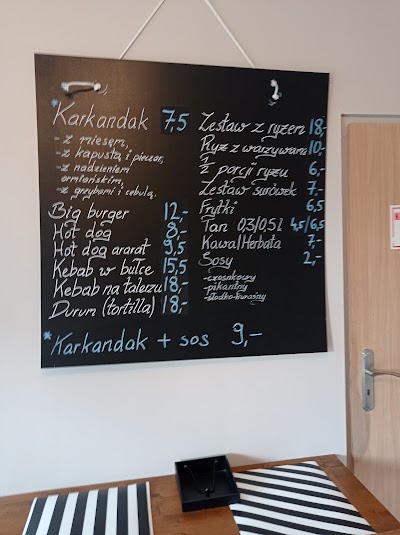 *Karkandak 7,5
- z mięsem,
- z kapustą i pieczar,
- z nadzieniem
ormiańskim,
- z grzybami i cebulą.
Big burger 12,-
Hot dog 8,-
Hot dog ararat 9,5
Kebab w bułce 15,5
Kebab na talerzu 18,-
Durum (tortilla) 18,-
Zestaw z ryżem 18,-
Ryż z warzywami 10,-
1/2 porcji ryżu 6,-
Zestaw surówek 7,-
Frytki 6,5
Tan 0,3/0,5l 4,5/6,5
Kawa/Herbata 7,-
Sosy 2,-
- czosnkowy
- pikantny
- słodko-kwaśny
*Karkandak + sos 9,-